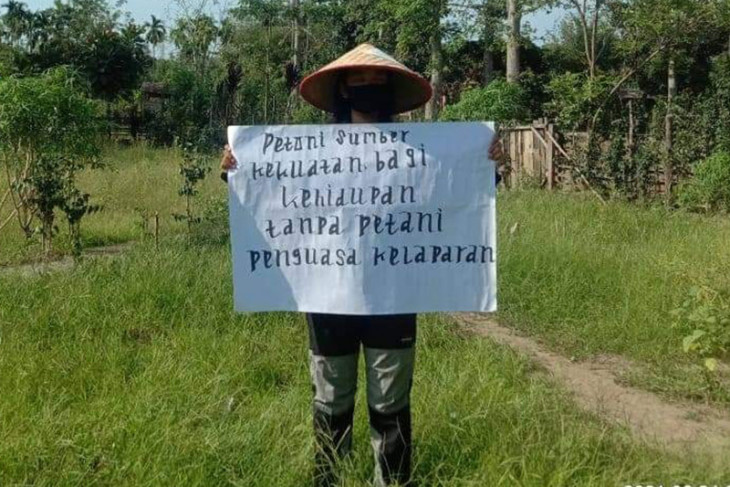 Petani sumber
kekuatan bagi
kehidupan
tanpa petani
penguasa kelaparan